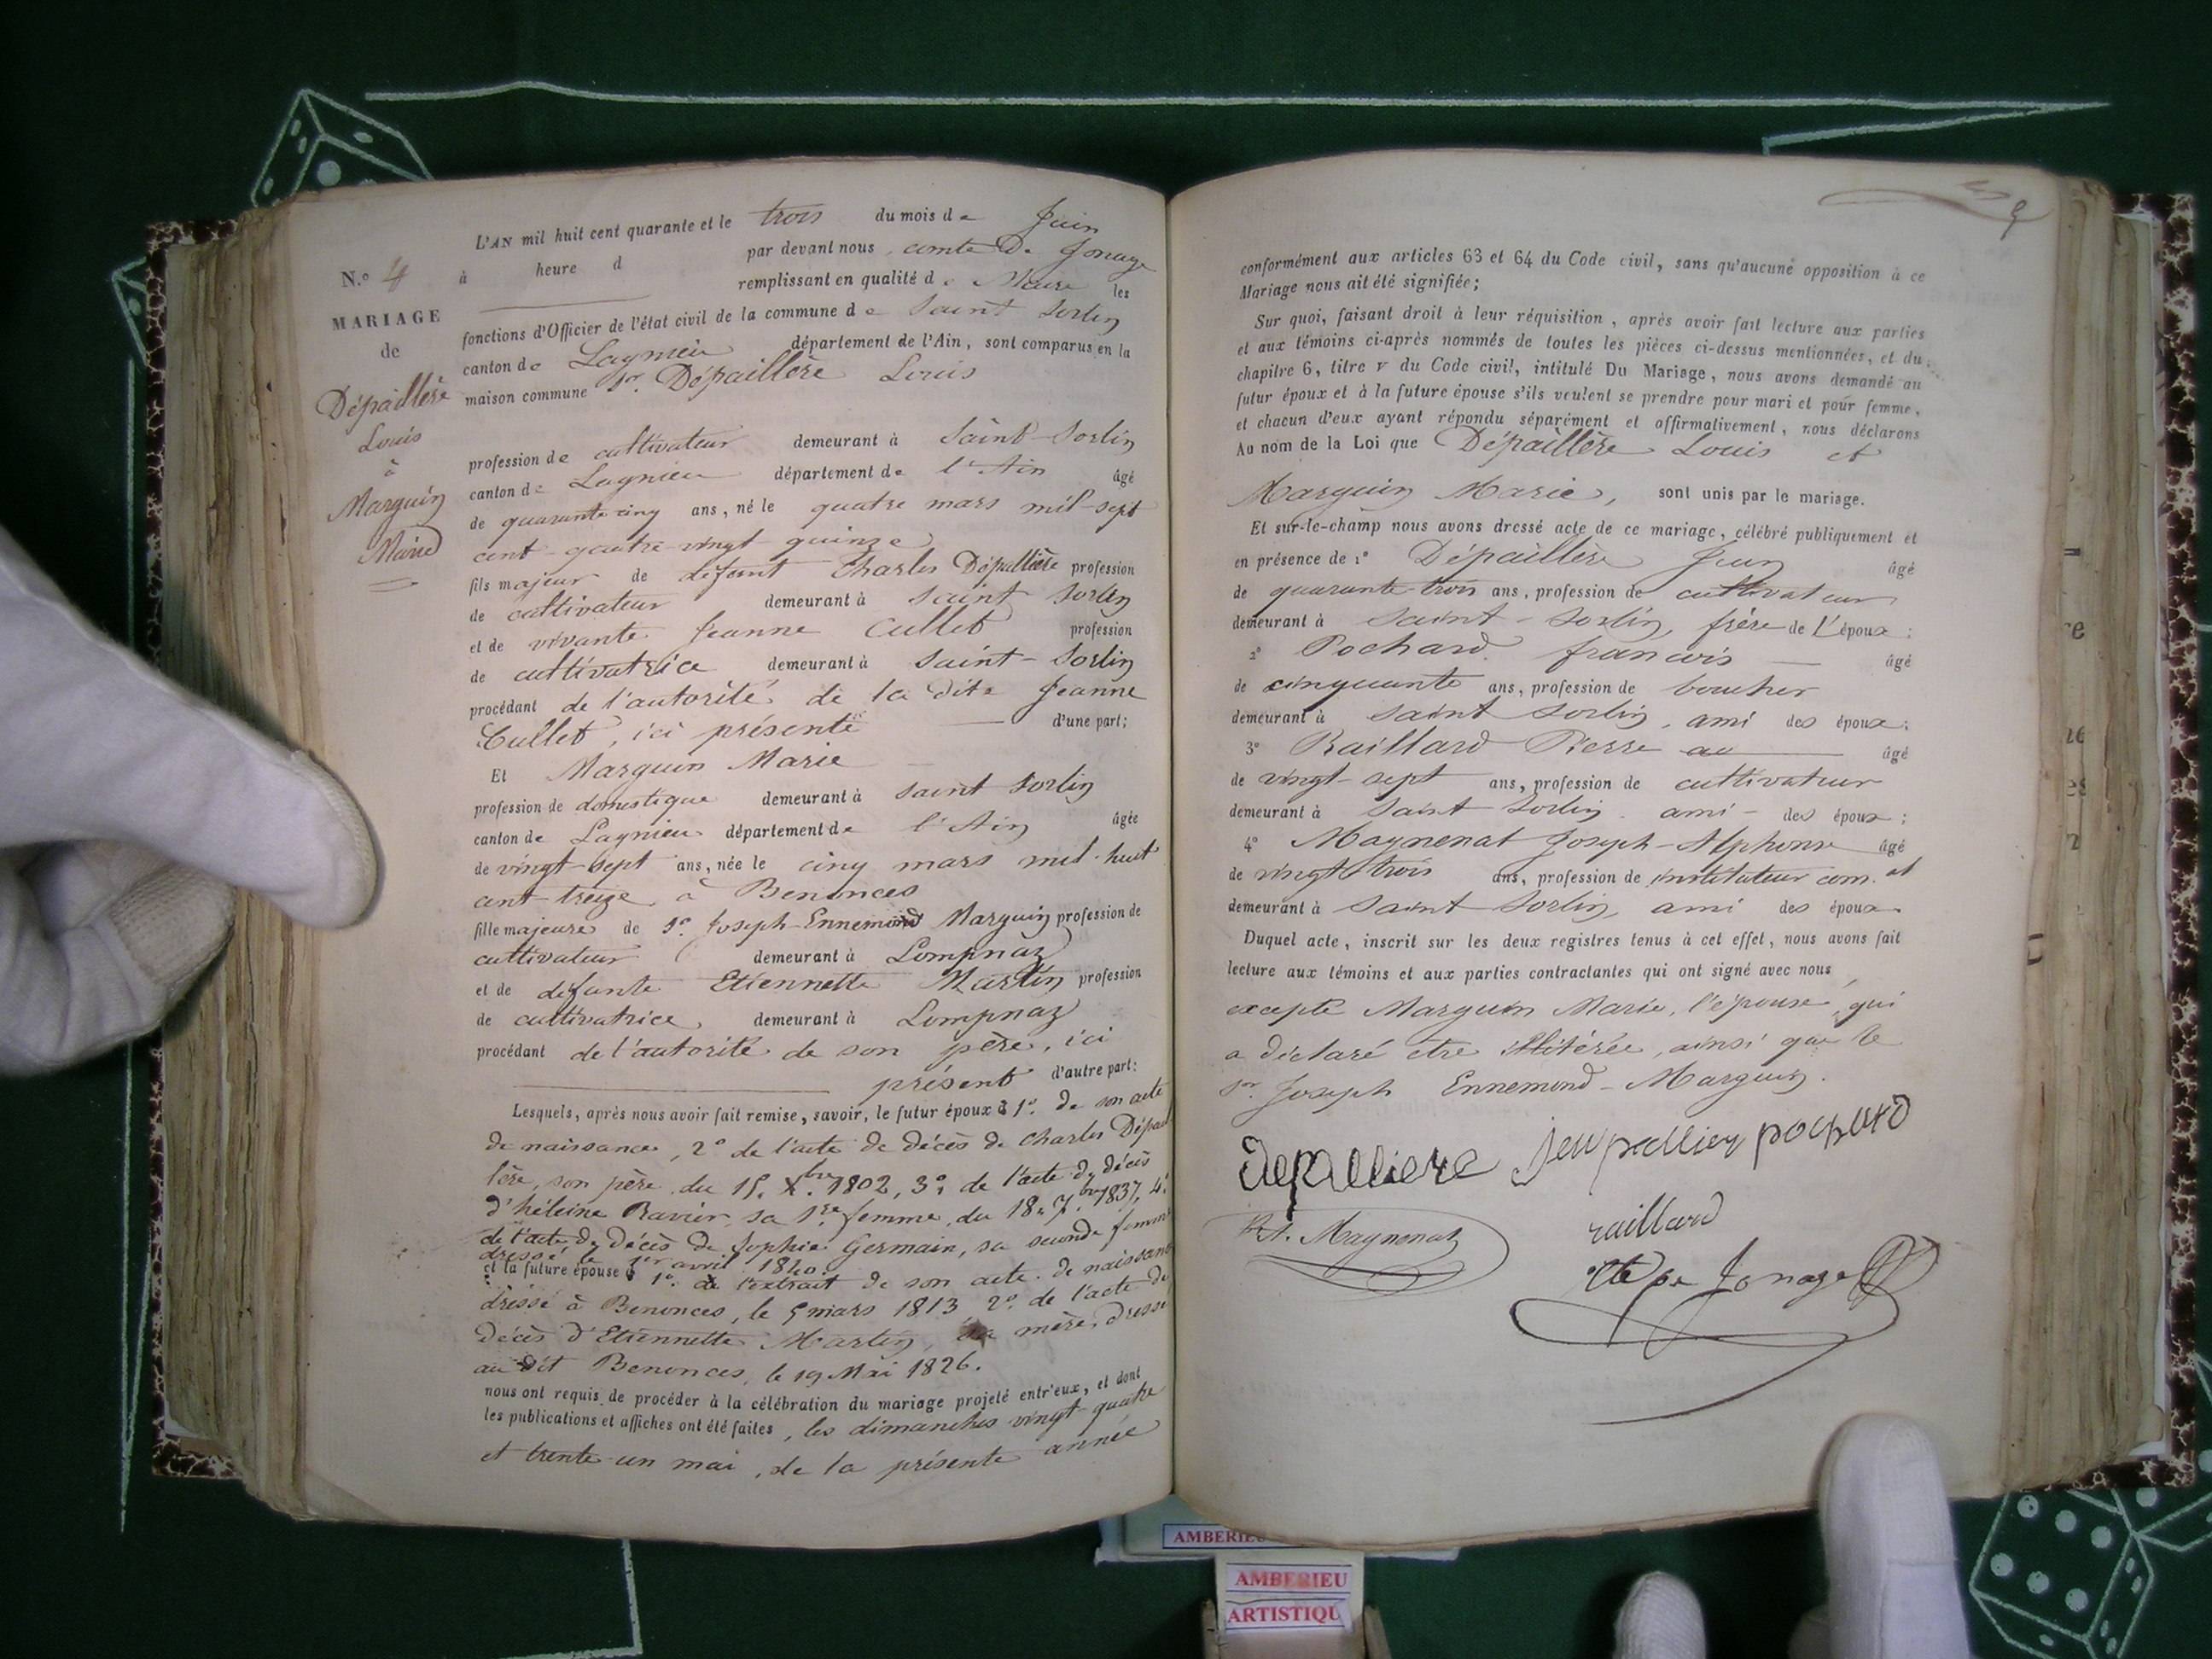 L'AN mil huit cent quarante et le trois du mois de Juin
N.º 4 à heure d par devant nous, comte De Jonage
remplissant en qualité de Maire les
MARIAGE
de
Dépaillère
Louis
à
Marguin
Marie
fonctions d'Officier de l'état civil de la commune de Saint Sorlin
canton de Lagnieu département de l'Ain, sont comparus en la
maison commune Sr. Dépaillère Louis
profession de cultivateur demeurant à Saint-Sorlin
canton de Lagnieu département de l'Ain âgé
de quarante-cinq ans, né le quatre mars mil-sept
cent-quatre-vingt quinze
fils majeur de défunt Charles Dépallière profession
de cultivateur demeurant à Saint Sorlin
et de vivante Jeanne Cullet profession
de cultivatrice demeurant à Saint-Sorlin
procédant de l'autorité de la dite Jeanne
Cullet, ici présente d'une part;
Et Marguin Marie
profession de domestique demeurant à Saint Sorlin
canton de Lagnieu département de l'Ain âgée
de vingt-sept ans, née le cinq mars mil-huit
cent-treize, à Benonces
fille majeure de Sr. Joseph-Ennemond Marguin profession de
cultivateur demeurant à Lompnaz
et de défunte Etiennette Martin profession
de cultivatrice demeurant à Lompnaz
procédant de l'autorité de son père, ici
présent d'autre part:
Lesquels, après nous avoir fait remise, savoir, le futur époux 1º. de son acte
de naissance, 2º de l'acte de décès de Charles Dépail
lère, son père du 15. Xbre 1802, 3º, de l'acte de décès
d'héleine Ravier, sa 1re. femme, du 18. 7bre 1837, 4º
de l'acte de décès de Sophie Germain, sa seconde femme
dressé le 1er avril 1840.
et la future épouse 1º. de l'extrait de son acte de naissance
dressé à Benonces, le 5 mars 1813 2º. de l'acte de
décès d'Etiennette Martin, sa mère, dressé
au dit Benonces, le 19 Mai 1826.
nous ont requis de procéder à la célébration du mariage projeté entr'eux, et dont
les publications et affiches ont été faites, les dimanches vingt-quatre
et trente-un mai, de la présente année
conformément aux articles 63 et 64 du Code civil, sans qu'aucune opposition à ce
Mariage nous ait été signifiée;
Sur quoi, faisant droit à leur réquisition, après avoir fait lecture aux parties
et aux témoins ci-après nommés de toutes les pièces ci-dessus mentionnées, et du
chapitre 6, titre v du Code civil, intitulé Du Mariage, nous avons demandé au
futur époux et à la future épouse s'ils veulent se prendre pour mari et pour femme,
et chacun d'eux ayant répondu séparément et affirmativement, nous déclarons
Au nom de la Loi que Dépaillère Louis et
Marguin Marie, sont unis par le mariage.
Et sur-le-champ nous avons dressé acte de ce mariage, célébré publiquement et
en présence de 1º Dépaillère Jean âgé
de quarante-trois ans, profession de cultivateur
demeurant à Saint-Sorlin, frère de l'époux;
2º Pochard francois âgé
de cinquante ans, profession de boucher
demeurant à Saint Sorlin, ami des époux;
3º Raillard Pierre âgé
de vingt-sept ans, profession de cultivateur
demeurant à Saint-Sorlin ami - des époux;
4º Magnenat Joseph-Alphonse âgé
de vingt trois ans, profession de instituteur com.al
demeurant à Saint Sorlin, ami des époux.
Duquel acte, inscrit sur les deux registres tenus à cet effet, nous avons fait
lecture aux témoins et aux parties contractantes qui ont signé avec nous
excepté Marguin Marie, l'épouse, qui
a déclaré être illitérée, ainsi que le
Sr. Joseph Ennemond-Marguin.
depalliere Jean pallier pochard
Magnenat raillard
cte de Jonage
AMBERIEU
AMBERIEU
ARTISTIQU